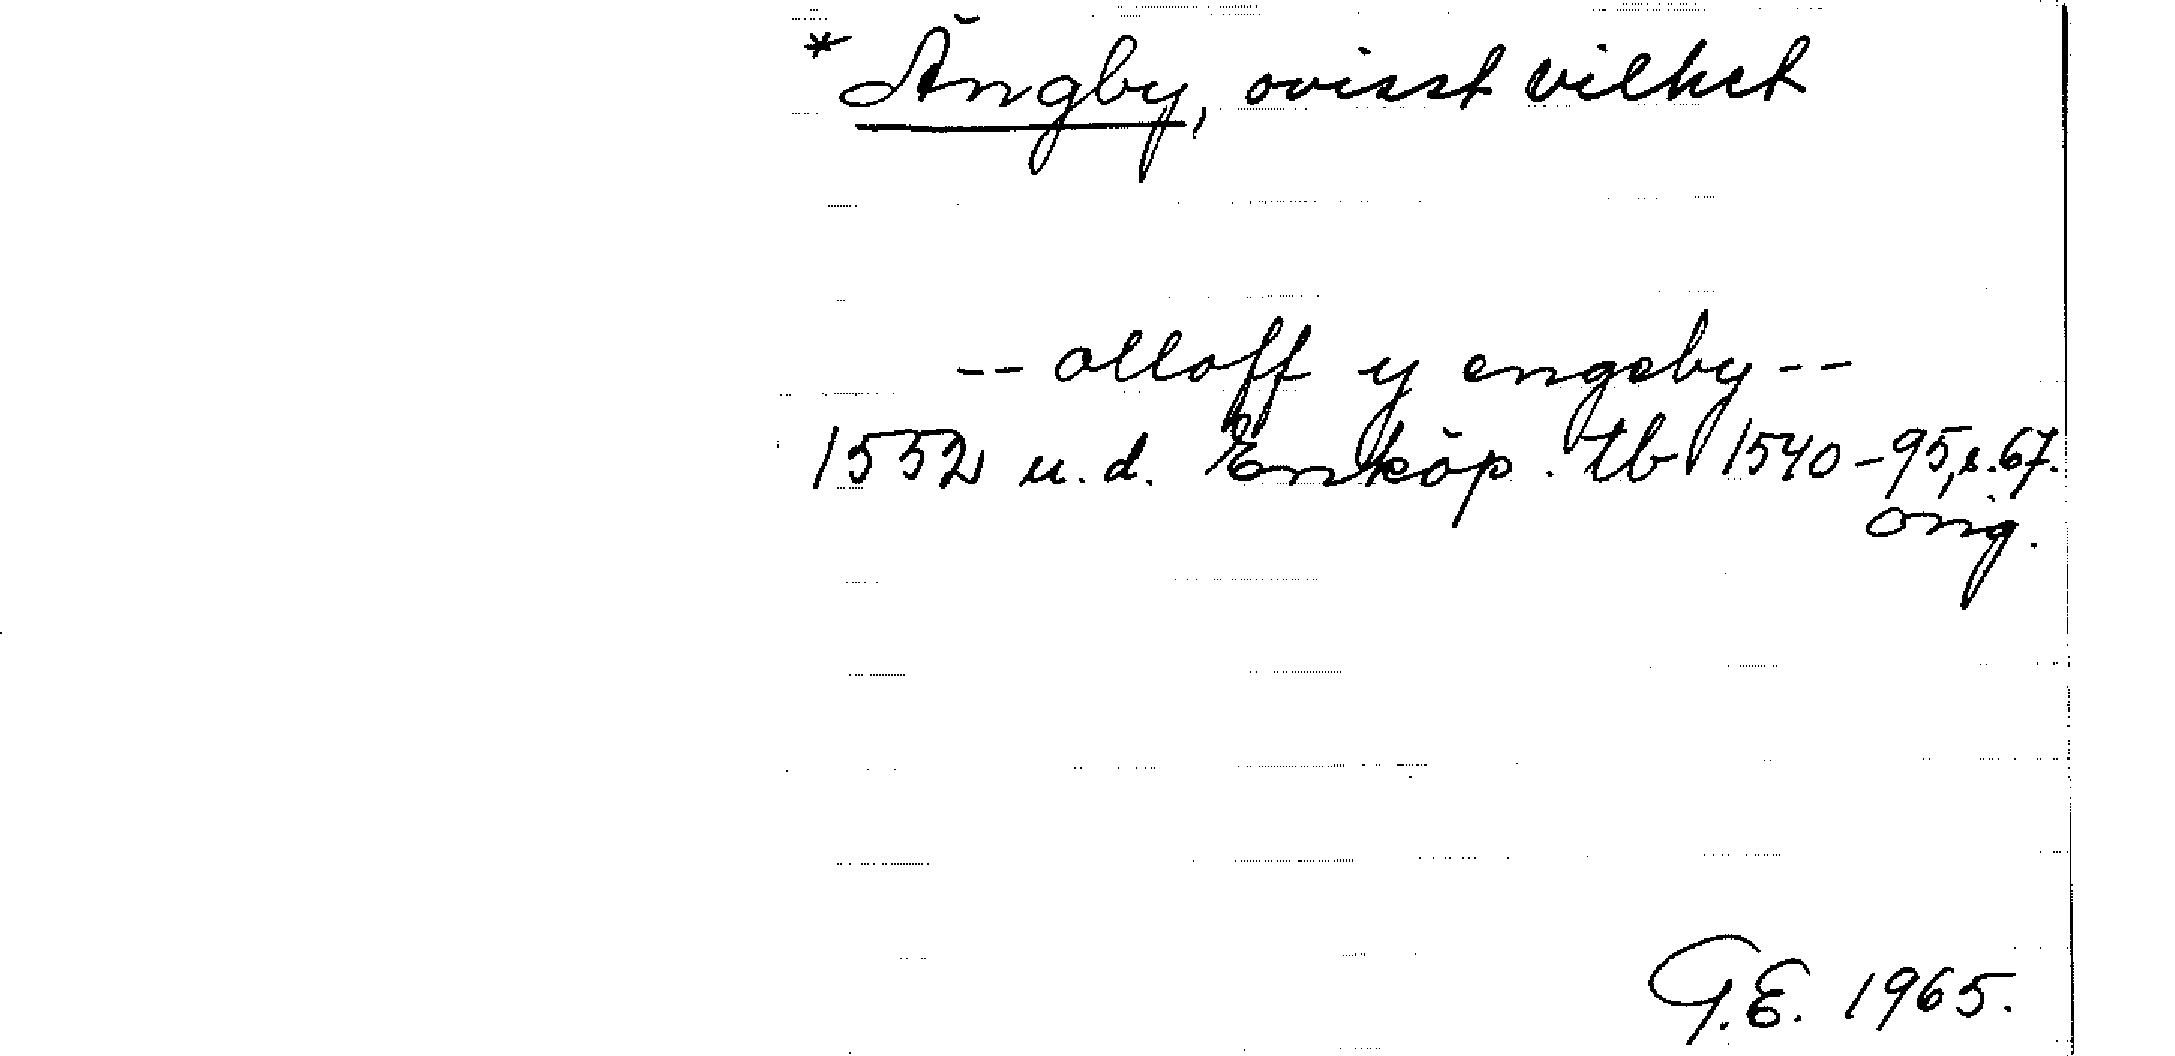 * Ängby, ovisst vilket
-- olloff y engeby --
1552 u. d. Enköp. tb 1540-95, s. 67.
orig.
G.E. 1965.